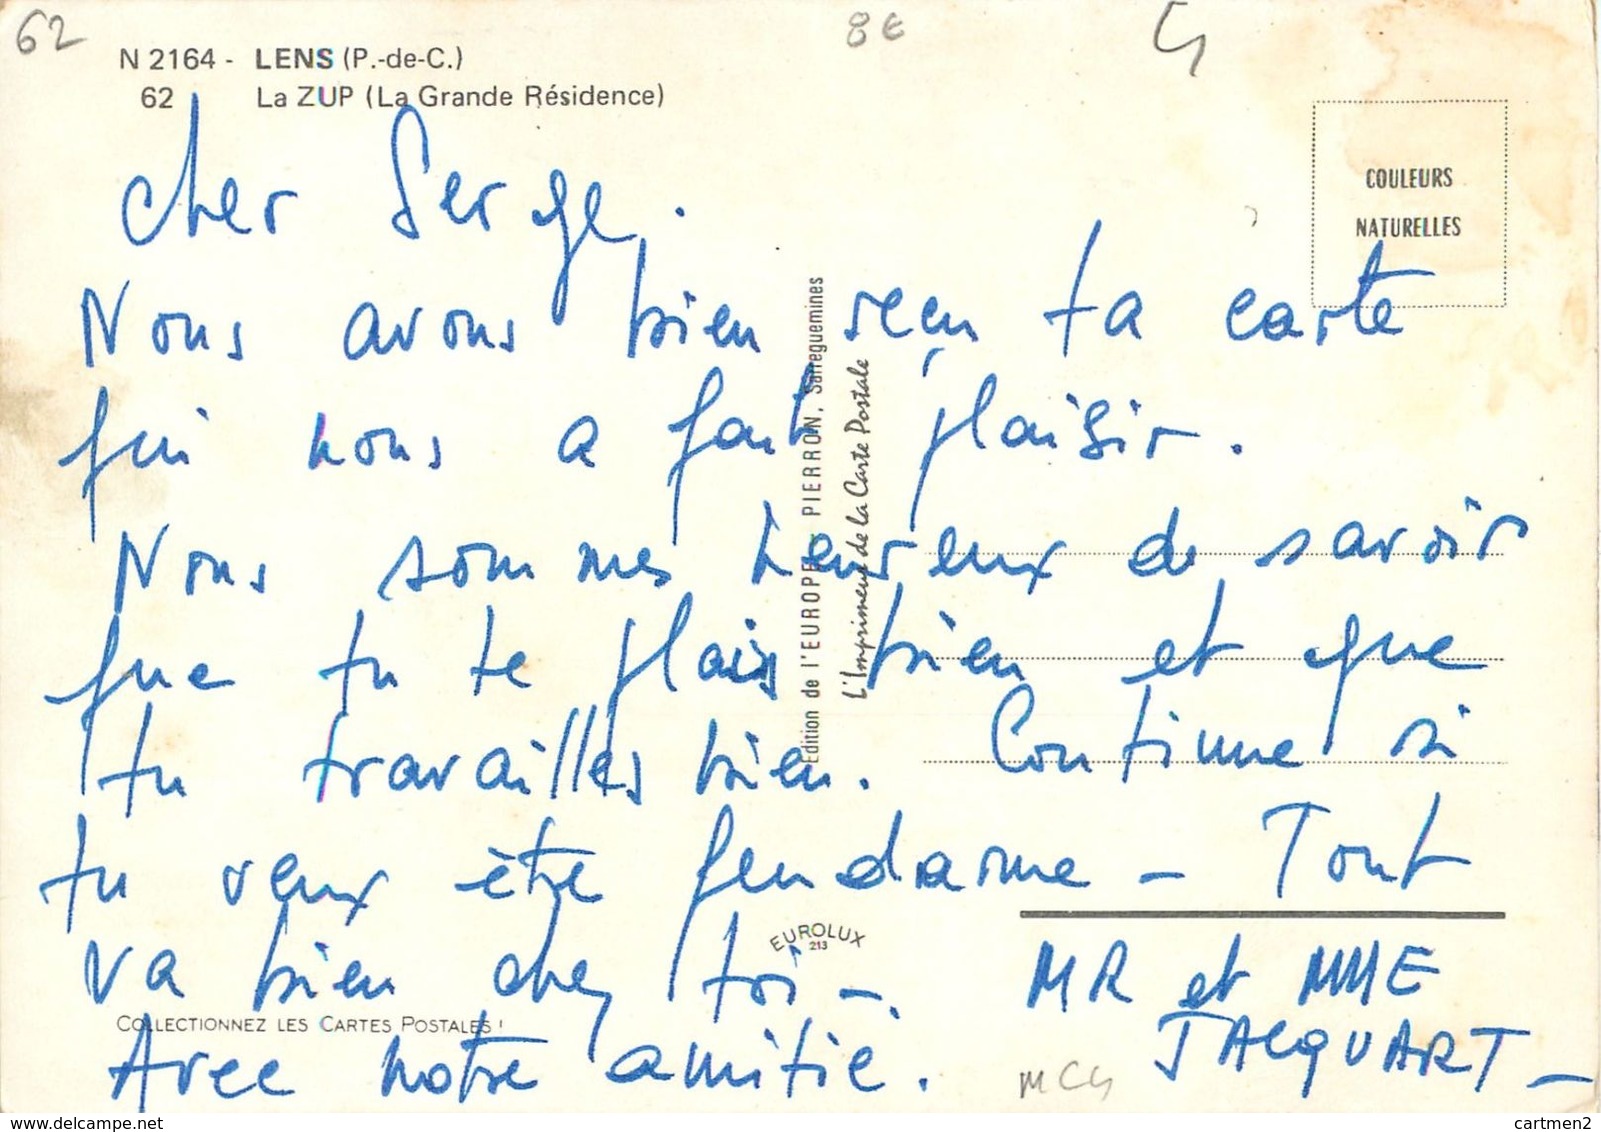 62
8€
N 2164 - LENS (P.-de-C.)
62 La ZUP (La Grande Résidence)
COULEURS
NATURELLES
Cher Serge,
Nous avons bien reçu ta carte
qui nous a fait plaisir.
Nous sommes heureux de savoir
que tu te plais bien et que
tu travailles bien. Continue si
tu veux être gendarme - Tout
va bien chez toi -
Avec notre amitié.
MR et MME
JACQUART -
Edition de l'EUROPE PIERRON, Sarreguemines
L'Imprimeur de la Carte Postale
EUROLUX
213
COLLECTIONNEZ LES CARTES POSTALES !
delcampe.net
cartmen2